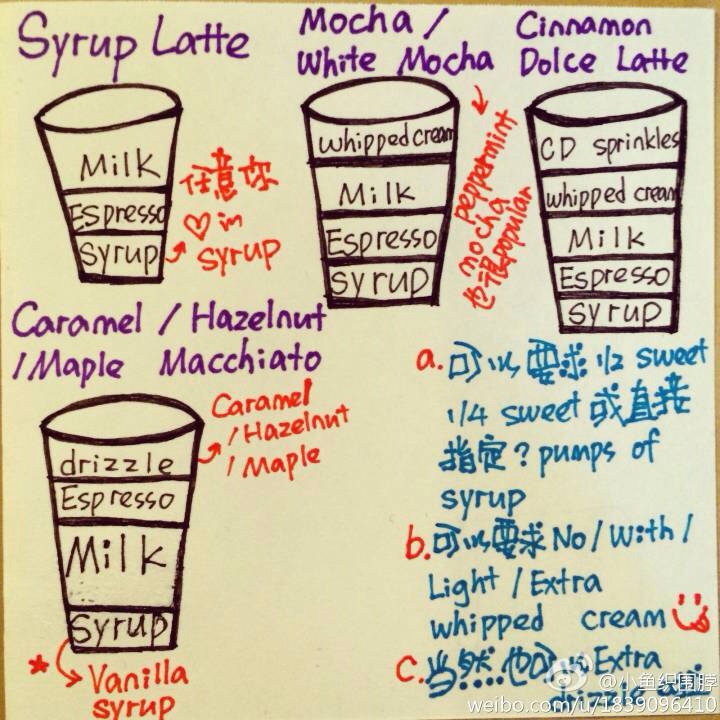 Syrup Latte
Milk
Espresso
Syrup
任意你
♡ in
syrup
Mocha /
White Mocha
whipped cream
Milk
Espresso
Syrup
peppermint
mocha
也很popular
Cinnamon
Dolce Latte
CD sprinkles
whipped cream
Milk
Espresso
Syrup
Caramel / Hazelnut
/ Maple Macchiato
drizzle
Espresso
Milk
Syrup
Caramel
/ Hazelnut
/ Maple
* Vanilla
syrup
a. 可以要求 1/2 sweet
1/4 sweet 或直接
指定? pumps of
syrup
b. 可以要求 No / With /
Light / Extra
whipped cream
c. 当然也可以 Extra
drizzle
@小鱼织围脖
weibo.com/u/1839096410